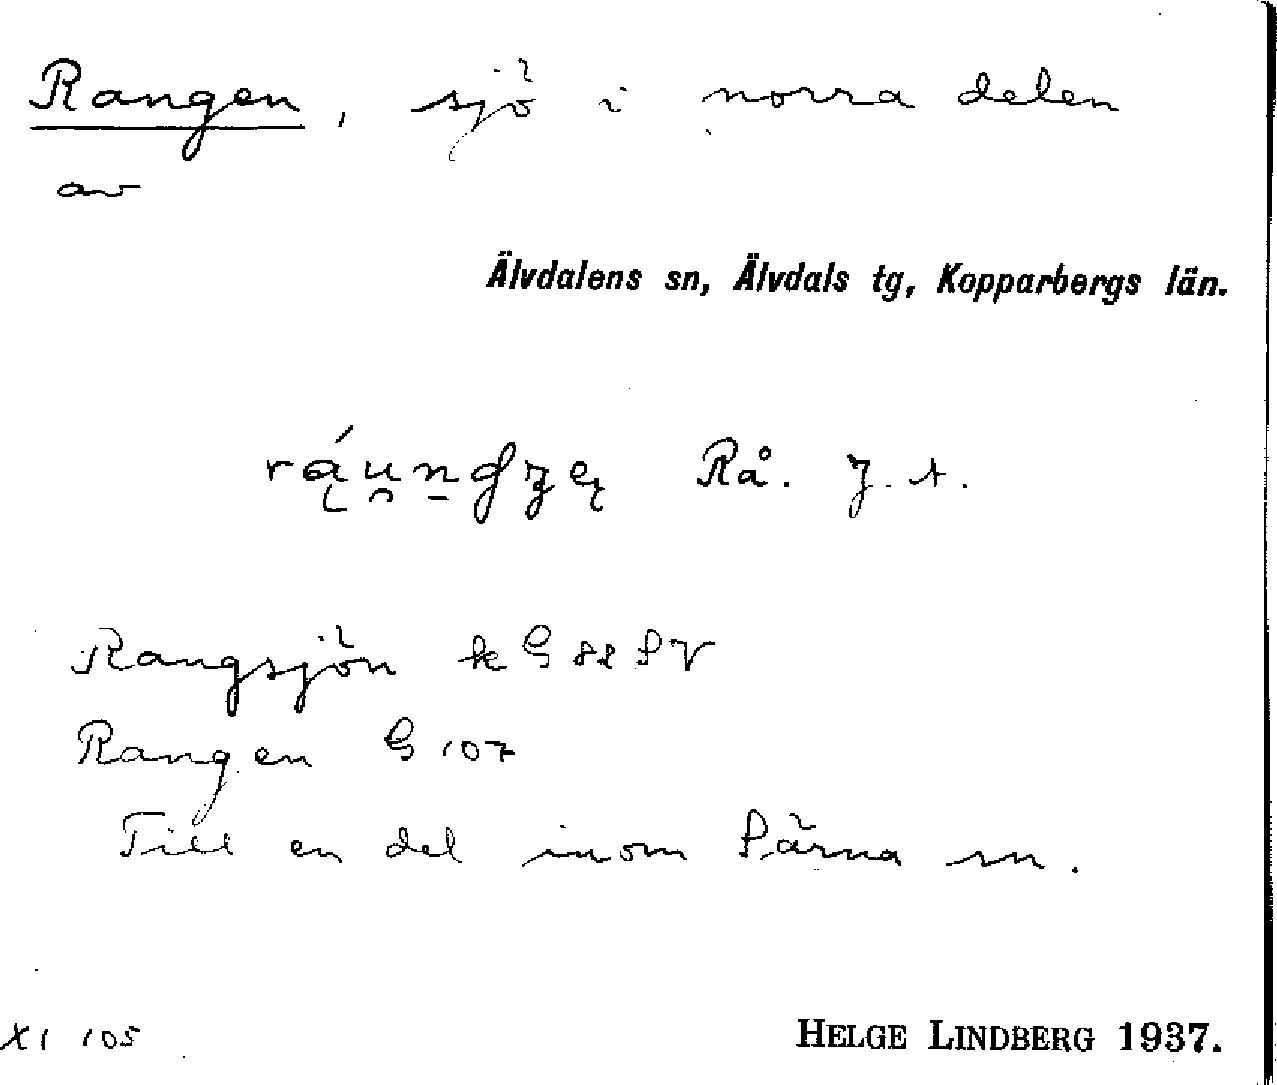 Rangen, sjö i norra delen
av
Älvdalens sn, Älvdals tg, Kopparbergs län.
Rå. J. t.
Rangsjön k G 82 SV
Rangen G 107
Till en del inom Särna sn.
XI 105
HELGE LINDBERG 1937.